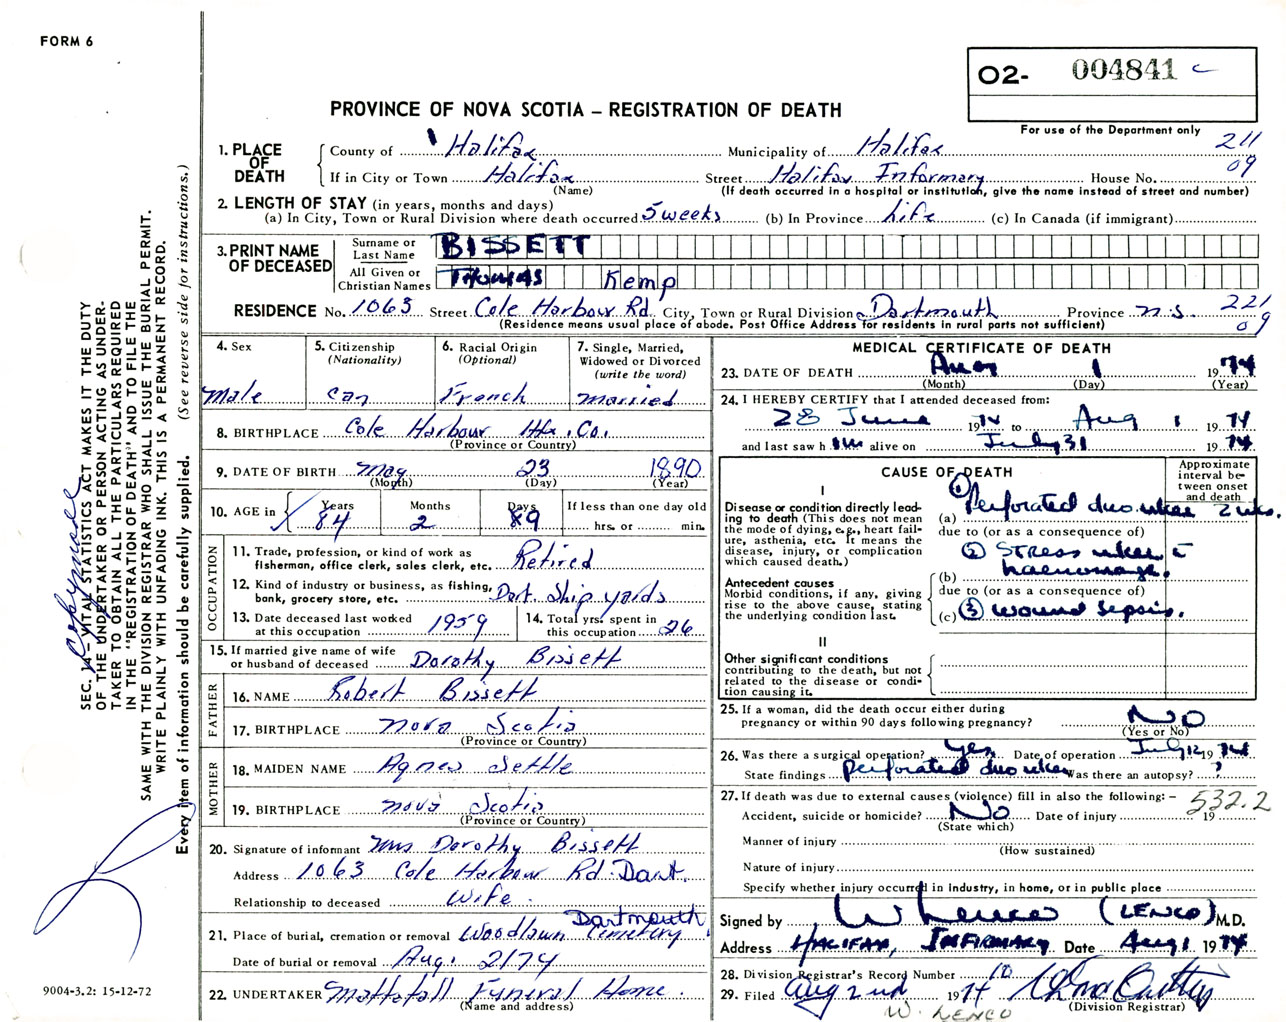 FORM 6
O2- 004841 c
PROVINCE OF NOVA SCOTIA – REGISTRATION OF DEATH
For use of the Department only
211
09
1. PLACE OF DEATH
County of Halifax Municipality of Halifax
If in City or Town Halifax Street Halifax Infirmary House No.
(Name) (If death occurred in a hospital or institution, give the name instead of street and number)
2. LENGTH OF STAY (in years, months and days)
(a) In City, Town or Rural Division where death occurred 5 weeks (b) In Province Life (c) In Canada (if immigrant)
3. PRINT NAME OF DECEASED
Surname or Last Name BISSETT
All Given or Christian Names THOMAS Kemp
RESIDENCE No. 1063 Street Cole Harbour Rd City, Town or Rural Division Dartmouth Province N.S. 221
(Residence means usual place of abode. Post Office Address for residents in rural parts not sufficient) 09
4. Sex Male
5. Citizenship (Nationality) Can
6. Racial Origin (Optional) French
7. Single, Married, Widowed or Divorced (write the word) Married
8. BIRTHPLACE Cole Harbour Hfx. Co.
(Province or Country)
9. DATE OF BIRTH May 23 1890
(Month) (Day) (Year)
10. AGE in Years 84 Months 2 Days 9 If less than one day old hrs. or min.
OCCUPATION
11. Trade, profession, or kind of work as fisherman, office clerk, sales clerk, etc. Retired
12. Kind of industry or business, as fishing, bank, grocery store, etc. Dart. Ship yards
13. Date deceased last worked at this occupation 1959
14. Total yrs. spent in this occupation 26
15. If married give name of wife or husband of deceased Dorothy Bissett
FATHER
16. NAME Robert Bissett
17. BIRTHPLACE Nova Scotia
(Province or Country)
MOTHER
18. MAIDEN NAME Agnes Settle
19. BIRTHPLACE Nova Scotia
(Province or Country)
20. Signature of informant Mrs Dorothy Bissett
Address 1063 Cole Harbour Rd. Dart.
Relationship to deceased Wife.
21. Place of burial, cremation or removal Woodlawn Cemetery Dartmouth
Date of burial or removal Aug. 2/74
22. UNDERTAKER Mattatall Funeral Home.
(Name and address)
MEDICAL CERTIFICATE OF DEATH
23. DATE OF DEATH Aug 1 1974
(Month) (Day) (Year)
24. I HEREBY CERTIFY that I attended deceased from:
28 June 1974 to Aug 1 1974
and last saw him alive on July 31 1974
CAUSE OF DEATH
Approximate interval between onset and death
I
Disease or condition directly leading to death (This does not mean the mode of dying, e.g., heart failure, asthenia, etc. It means the disease, injury, or complication which caused death.)
(a) ① Perforated duo ulcer 2 wks.
due to (or as a consequence of)
Antecedent causes
Morbid conditions, if any, giving rise to the above cause, stating the underlying condition last.
(b) ② Stress ulcer c̄ haemorrage.
due to (or as a consequence of)
(c) ③ wound sepsis.
II
Other significant conditions
contributing to the death, but not related to the disease or condition causing it.
25. If a woman, did the death occur either during pregnancy or within 90 days following pregnancy? NO
(Yes or No)
26. Was there a surgical operation? Yes Date of operation July 12 1974
State findings Perforated duo ulcer Was there an autopsy? ?
27. If death was due to external causes (violence) fill in also the following: – 532.2
Accident, suicide or homicide? NO Date of injury 19
(State which)
Manner of injury
(How sustained)
Nature of injury
Specify whether injury occurred in industry, in home, or in public place
Signed by W Lenco (LENCO) M.D.
Address HALIFAX, INFIRMARY Date Aug 1 1974
28. Division Registrar's Record Number 10
29. Filed Aug 2nd 1974
(Division Registrar)
W. LENCO
SEC. 14 – VITAL STATISTICS ACT MAKES IT THE DUTY
OF THE UNDERTAKER OR PERSON ACTING AS UNDER-
TAKER TO OBTAIN ALL THE PARTICULARS REQUIRED
IN THE "REGISTRATION OF DEATH" AND TO FILE THE
SAME WITH THE DIVISION REGISTRAR WHO SHALL ISSUE THE BURIAL PERMIT.
WRITE PLAINLY WITH UNFADING INK. THIS IS A PERMANENT RECORD.
Every item of information should be carefully supplied. (See reverse side for instructions.)
9004-3.2: 15-12-72